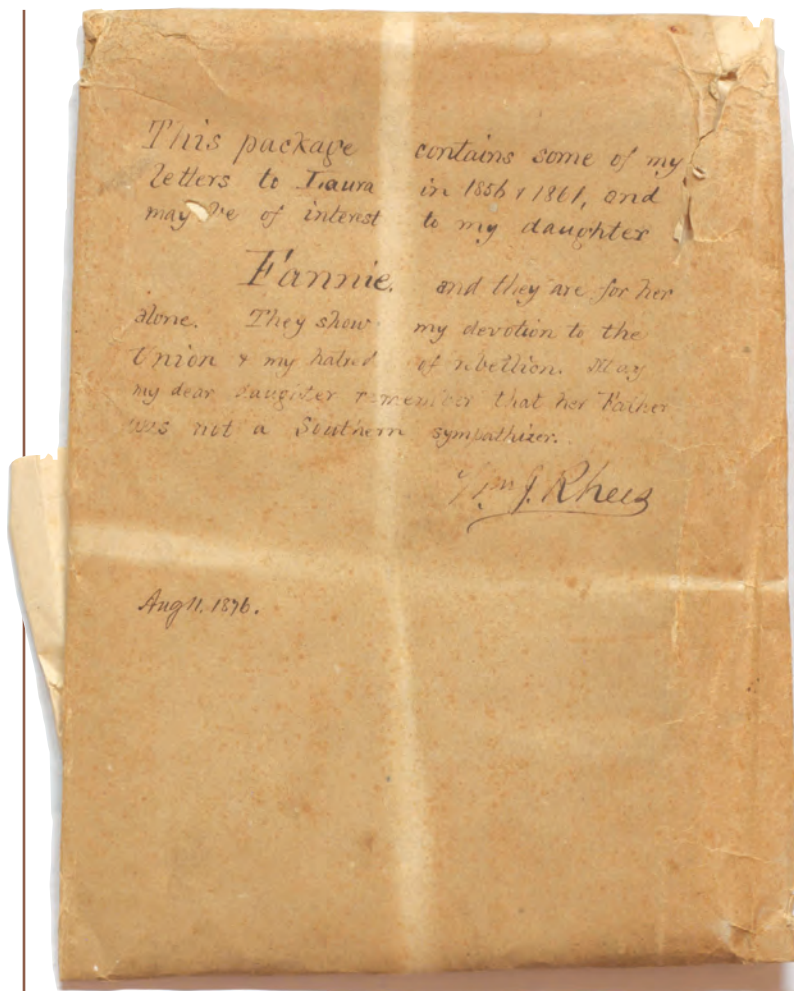 This package contains some of my
letters to Laura in 1856 & 1861, and
may be of interest to my daughter
Fannie. and they are for her
alone. They show my devotion to the
Union & my hatred of rebellion. May
my dear daughter remember that her Father
was not a Southern sympathizer.
Wm J. Rhees
Aug 11. 1876.